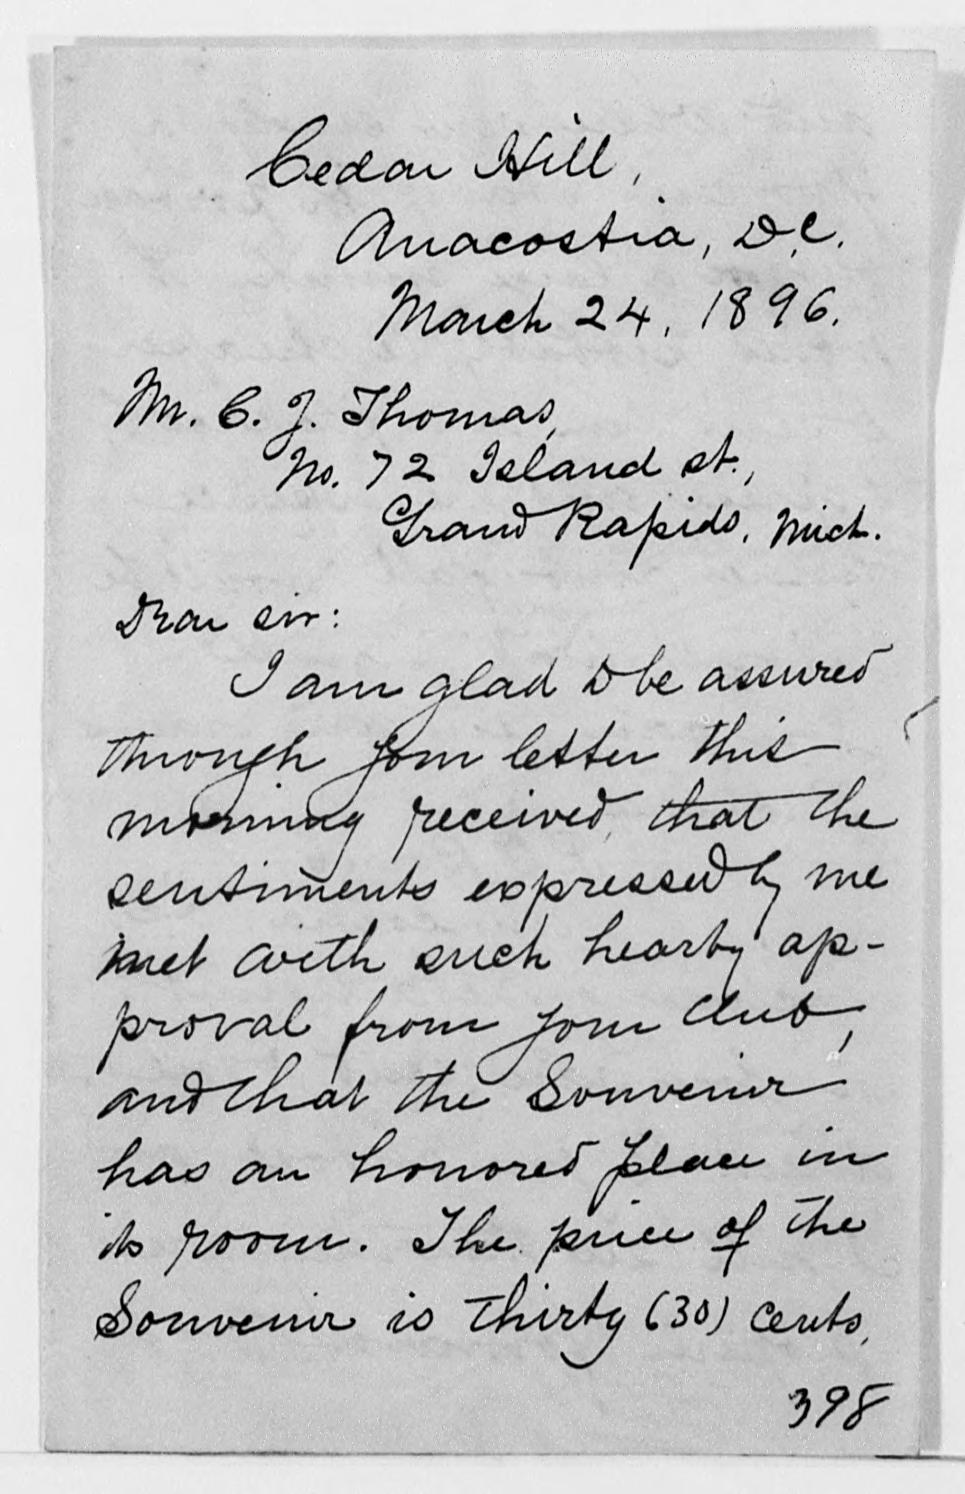 Cedar Hill,
Anacostia, D.C.
March 24, 1896.
Mr. C. J. Thomas,
No. 72 Island st.,
Grand Rapids, Mich.
Dear sir:
I am glad to be assured
through your letter this
morning received, that the
sentiments expressed by me
met with such hearty ap-
proval from your Club,
and that the Souvenir
has an honored place in
its room. The price of the
Souvenir is thirty (30) cents,
398